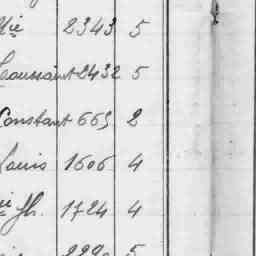 Mie 2343 5
Toussaint 2432 5
Constant 665 2
Louis 1606 4
Jh. 1724 4
5